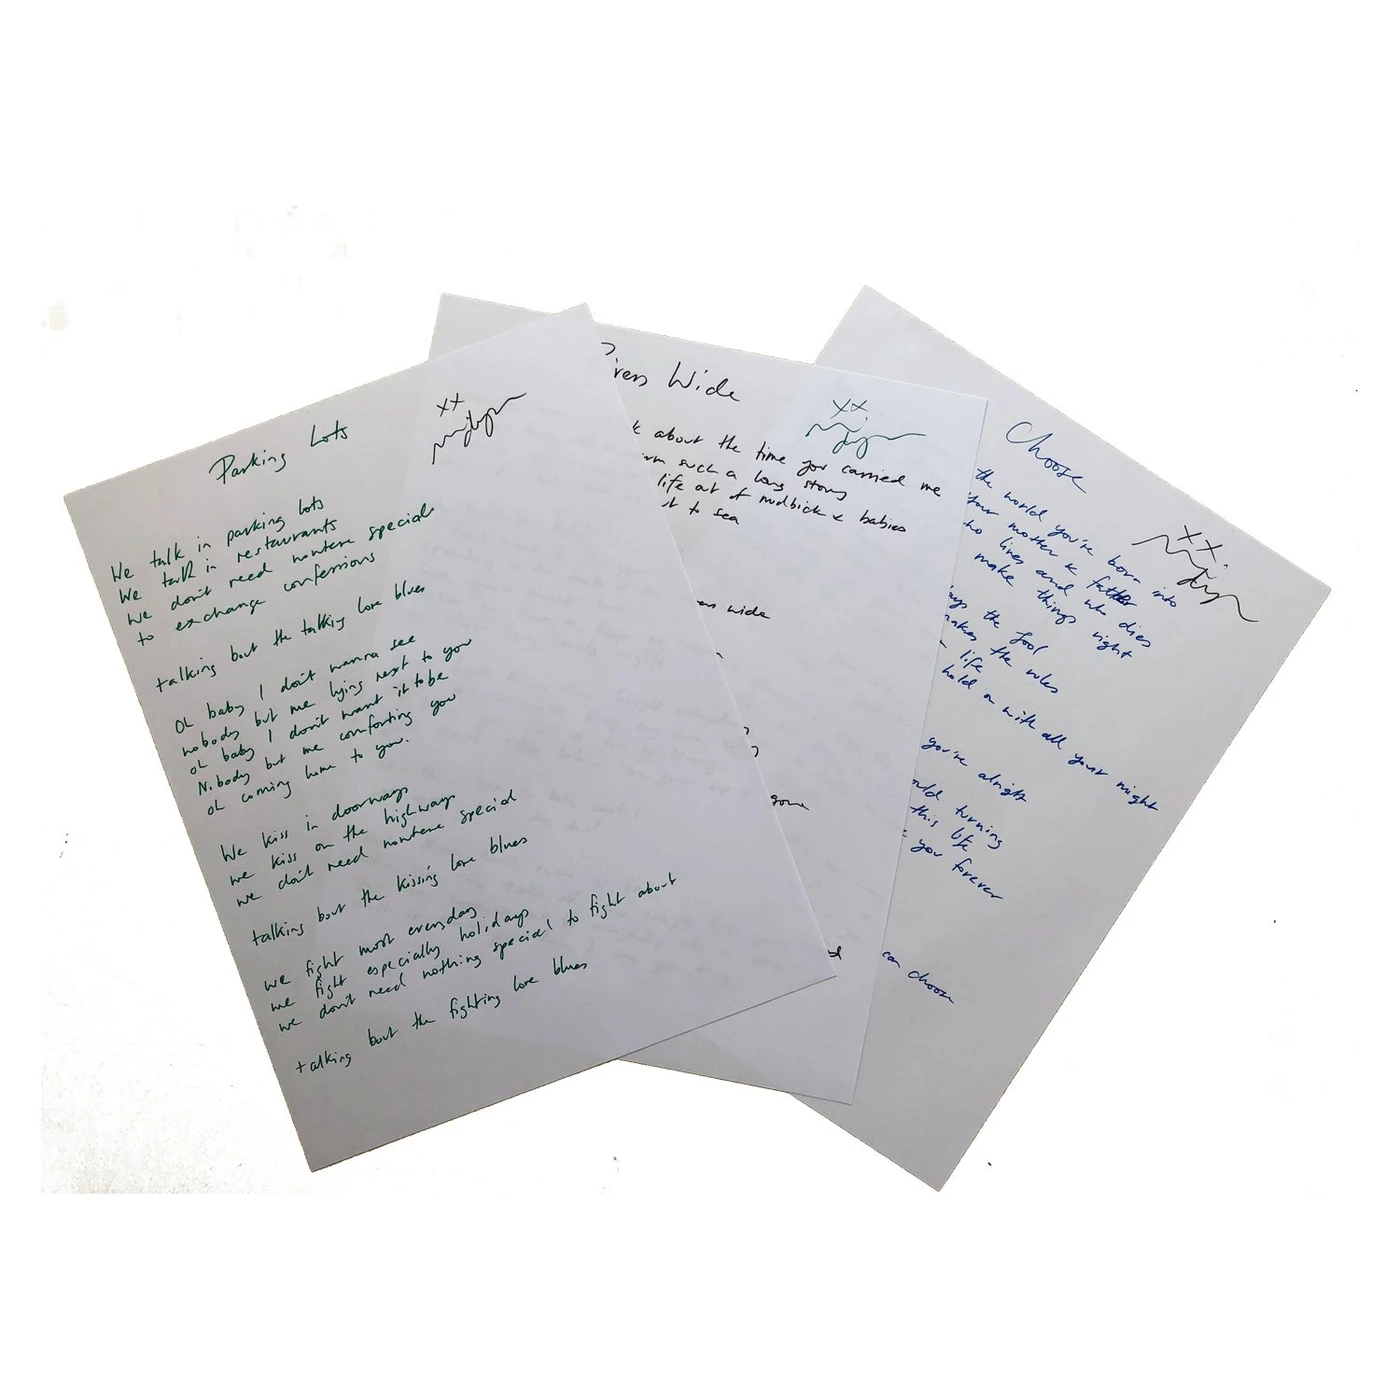 Parking Lots
xx
We talk in parking lots
We talk in restaurants
we don't need nowhere special
to exchange confessions
talking bout the talking love blues
Oh baby I don't wanna see
nobody but me lying next to you
oh baby I don't want it to be
Nobody but me comforting you
oh coming home to you.
We kiss in doorways
we kiss on the highways
we don't need nowhere special
talking bout the kissing love blues
we fight most everyday
we fight especially holidays
we don't need nothing special to fight about
talking bout the fighting love blues
Wide
xx
about the time you carried me
such a long story
life out of mudbick & babies
to sea
wide
gone
Choose
xx
the world you're born into
your mother & father
who lives and who dies
make things right
the fool
makes the rules
life
hold on with all your might
you're alright
turning
this life
you forever
can choose